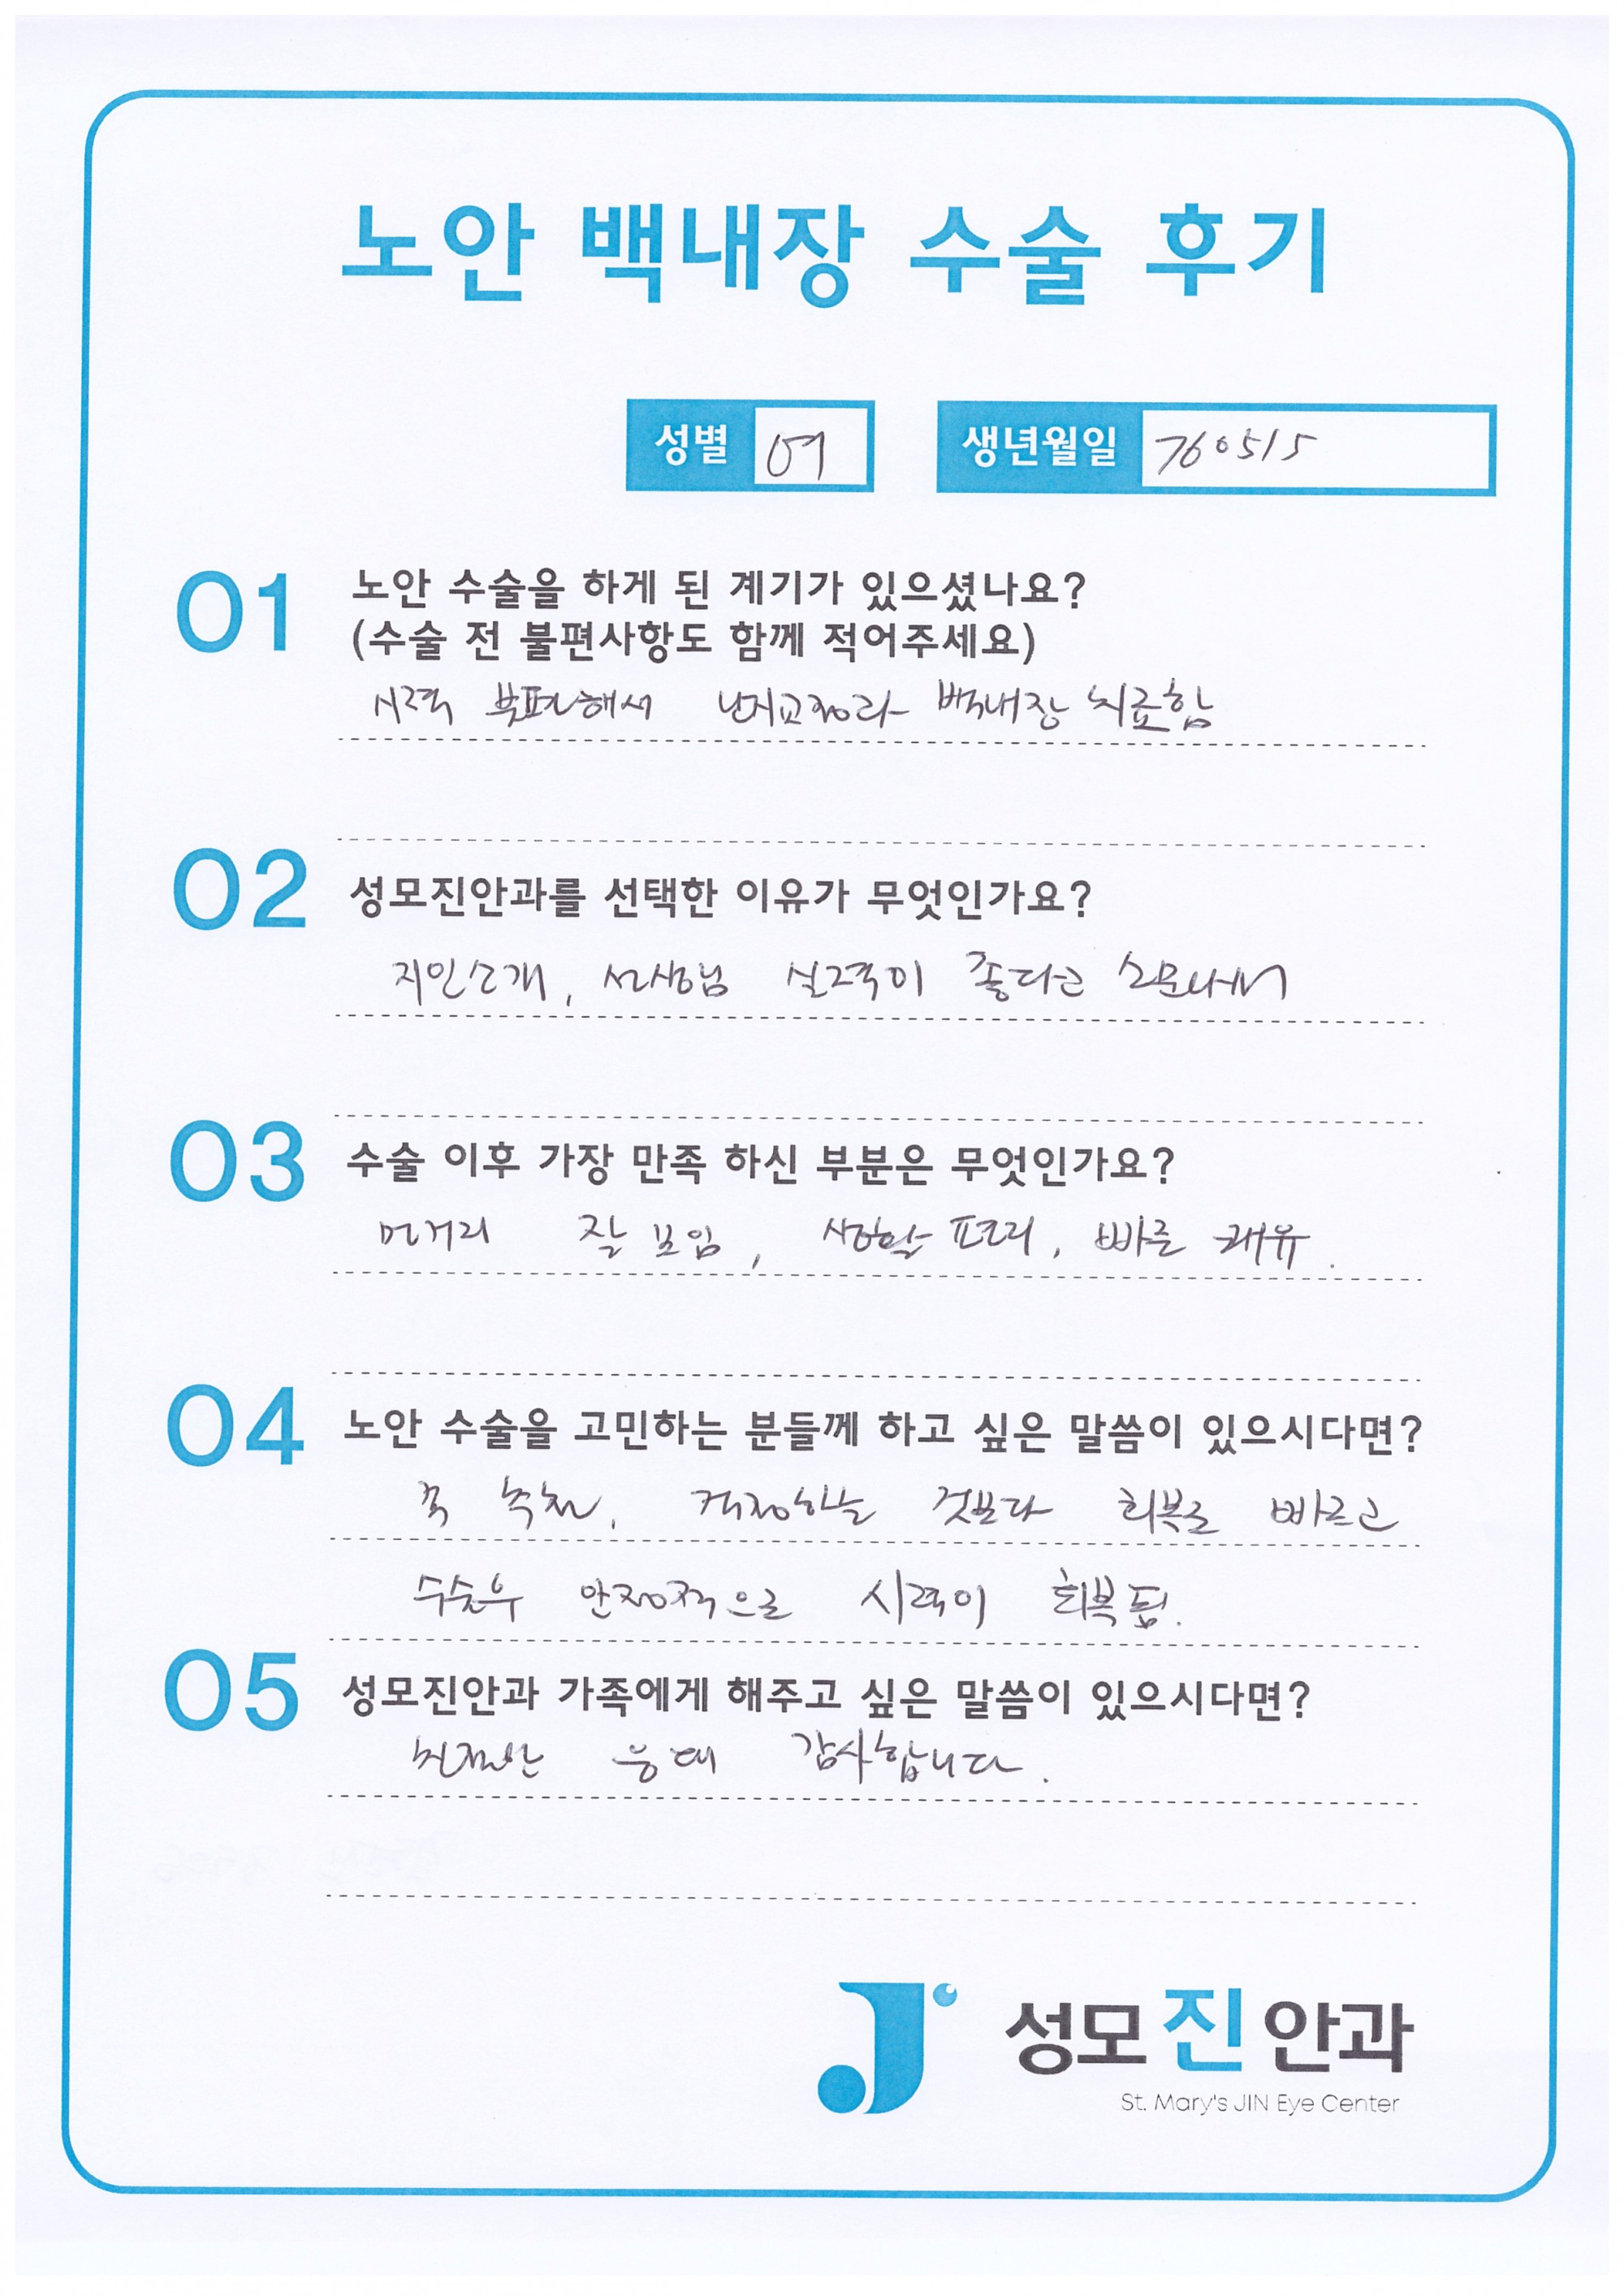 노안 백내장 수술 후기
성별 여 생년월일 760515
01 노안 수술을 하게 된 계기가 있으셨나요?
(수술 전 불편사항도 함께 적어주세요)
시력 불편해서 난시교정과 백내장 치료함
02 성모진안과를 선택한 이유가 무엇인가요?
지인소개, 선생님 실력이 좋다고 소문나서
03 수술 이후 가장 만족 하신 부분은 무엇인가요?
먼거리 잘 보임, 생활 편리, 빠른 쾌유.
04 노안 수술을 고민하는 분들께 하고 싶은 말씀이 있으시다면?
꼭 추천, 걱정하는 것보다 회복도 빠르고
수술후 안정적으로 시력이 회복됨.
05 성모진안과 가족에게 해주고 싶은 말씀이 있으시다면?
친절한 응대 감사합니다.
성모진안과
St. Mary's JIN Eye Center